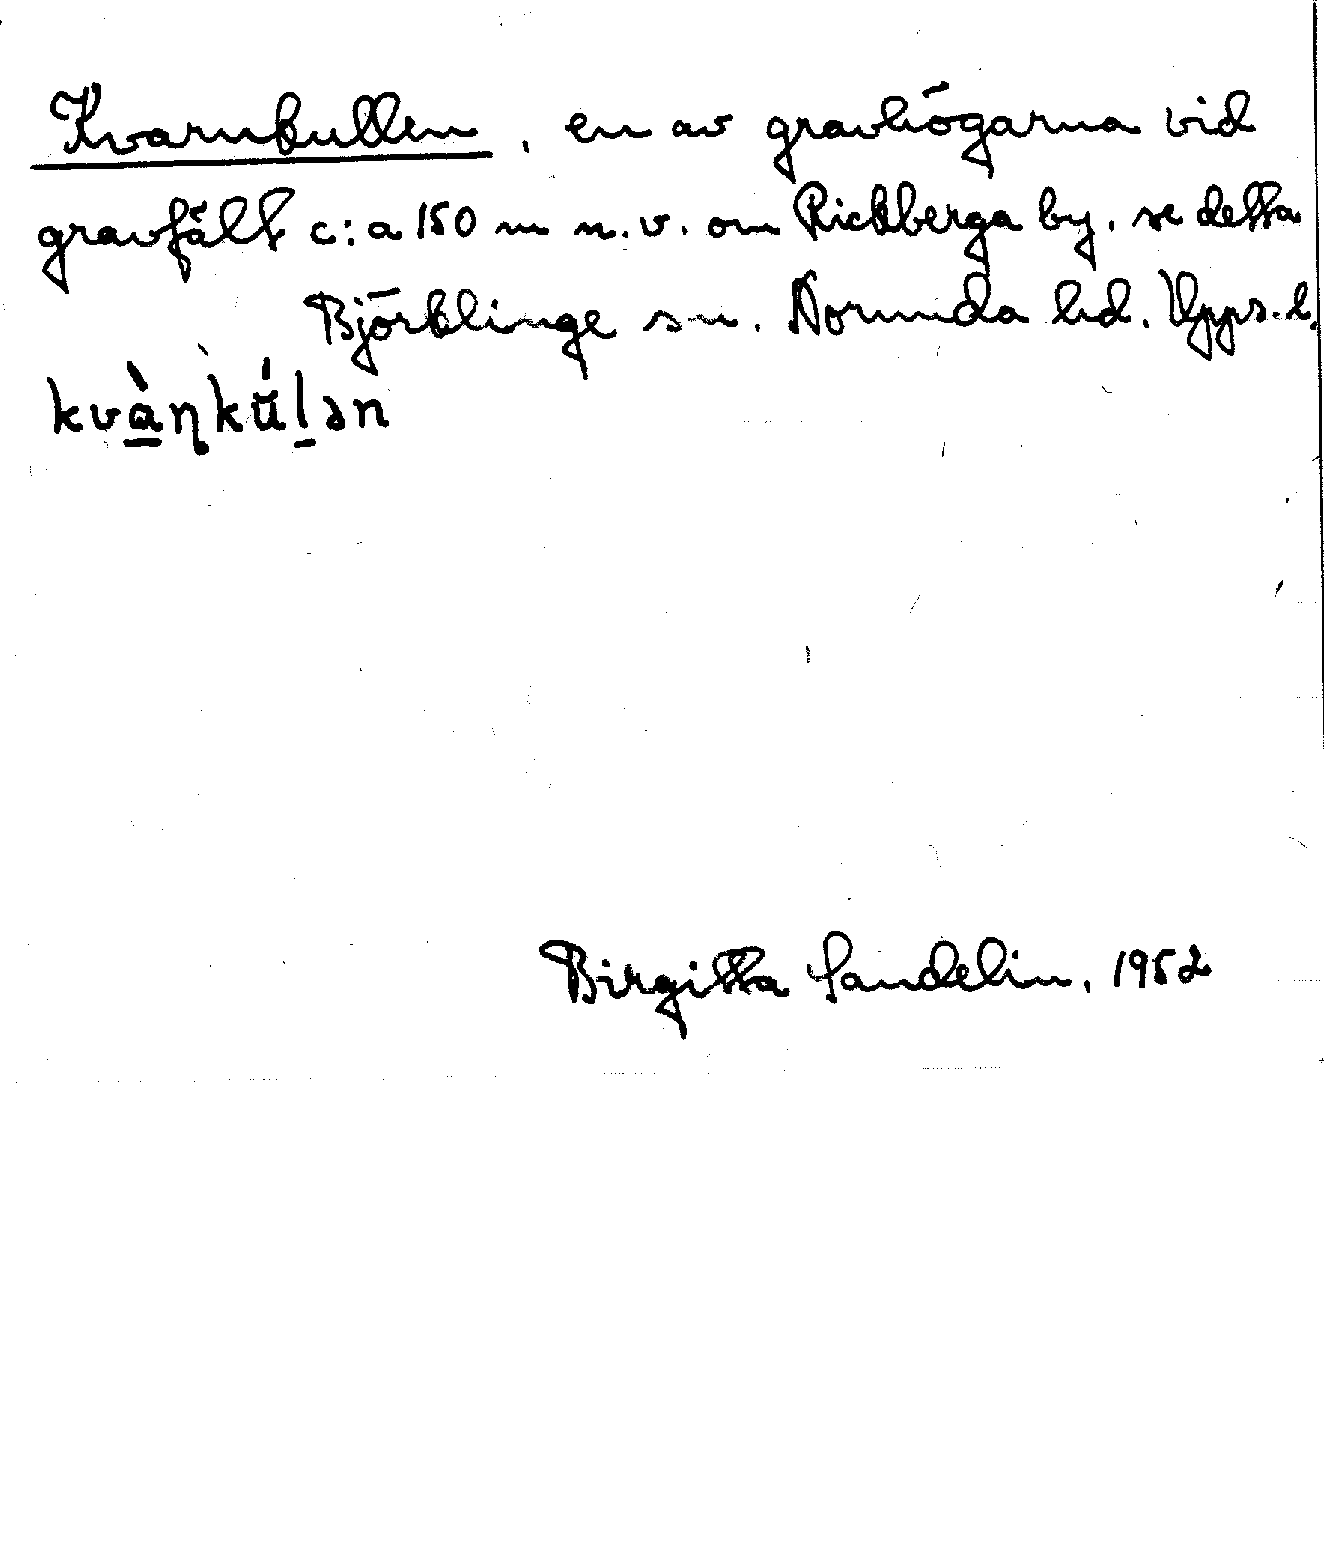 Kvarnkullen, en av gravhögarna vid
gravfält c:a 150 m n.v. om Rickberga by. se detta
Björklinge sn. Norunda hd. Upps. l.
kvа̱̀ɳkŭ́ḻən
Birgitta Sandelin, 1952